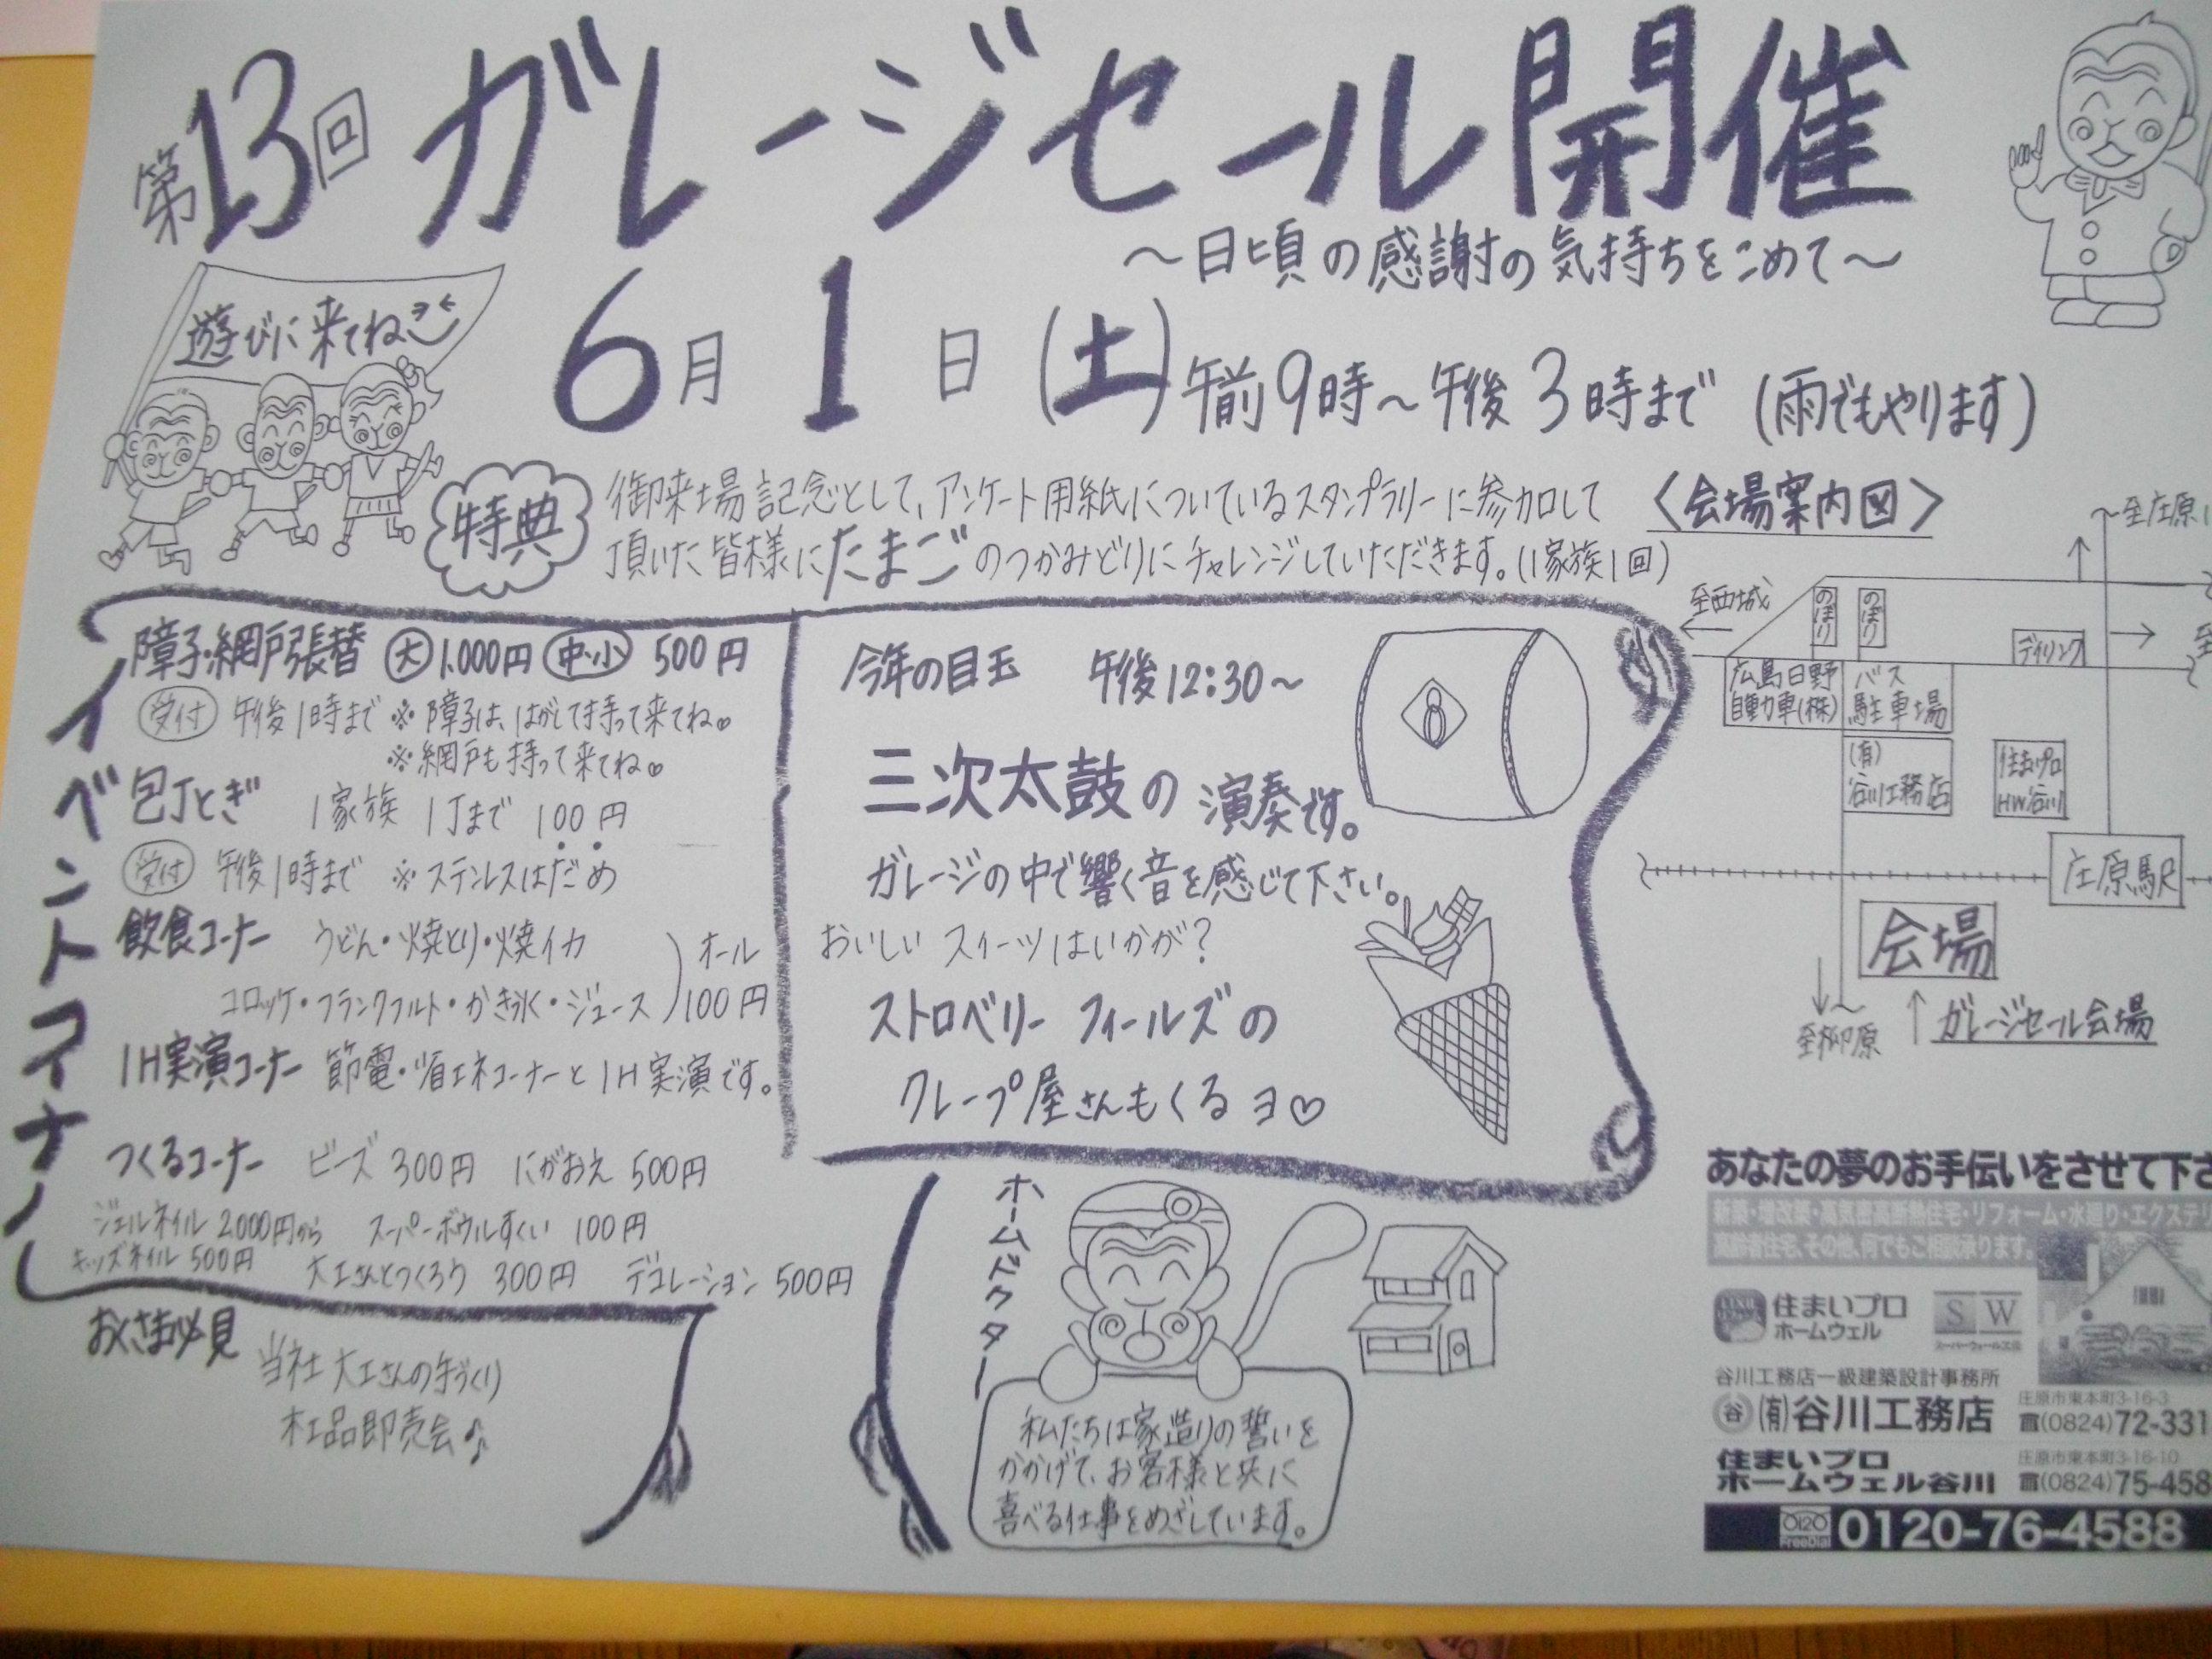 第13回 ガレージセール開催
～日頃の感謝の気持ちをこめて～
遊びに来てね
6月1日(土) 午前9時～午後3時まで (雨でもやります)
特典
御来場記念として、アンケート用紙についているスタンプラリーに参加して
頂いた皆様にたまごのつかみどりにチャレンジしていただきます。(1家族1回)
イベントコーナー
障子・網戸張替 大 1,000円 中・小 500円
受付 午後1時まで ※障子は、はがして持って来てね♡
※網戸も持って来てね♡
包丁とぎ 1家族 1丁まで 100円
受付 午後1時まで ※ステンレスはだめ
飲食コーナー うどん・焼とり・焼イカ
コロッケ・フランクフルト・かき氷・ジュース
オール
100円
IH実演コーナー 節電・省エネコーナーとIH実演です。
つくるコーナー ビーズ 300円 にがおえ 500円
ジェルネイル 2,000円から スーパーボウルすくい 100円
キッズネイル 500円 大工さんとつくろう 300円 デコレーション 500円
今年の目玉 午後12:30～
三次太鼓の演奏です。
ガレージの中で響く音を感じて下さい。
おいしいスィーツはいかが?
ストロベリーフィールズの
クレープ屋さんもくるヨ♡
おくさま必見
当社大工さんの手づくり
木工品即売会♪
ホームドクター
私たちは家造りの誓いを
かかげて、お客様と共に
喜べる仕事をめざしています。
〈会場案内図〉
～至庄原
至西城
のぼり
のぼり
デイリンク
至
広島日野
自動車(株)
バス
駐車場
(有)
谷川工務店
住まいプロ
HW谷川
庄原駅
会場
至柳原
ガレージセール会場
あなたの夢のお手伝いをさせて下さ
新築・増改築・高気密高断熱住宅・リフォーム・水廻り・エクステリ
高齢者住宅、その他、何でもご相談承ります。
住まいプロ
ホームウェル
SW
谷川工務店一級建築設計事務所
庄原市東本町3-16-3
谷 (有)谷川工務店 ☎(0824)72-331
住まいプロ
庄原市東本町3-16-10
ホームウェル谷川 ☎(0824)75-458
0120 Freedial 0120-76-4588